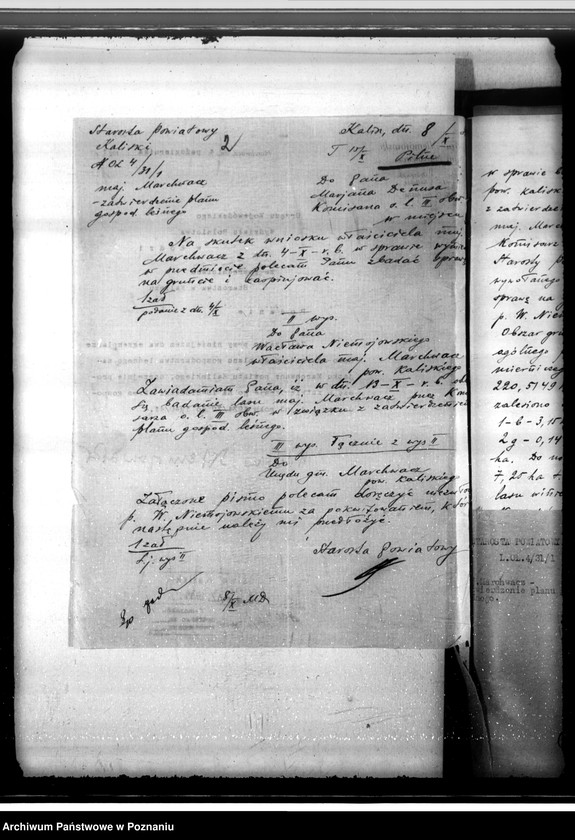 Starosta Powiatowy
Kaliski
L.OL 4/31/1
maj. Marchwacz
- zatwierdzenie planu
gospod. leśnego
2
Kalisz, dn. 8/X
T 15/X
Pilne
Do Pana
Marjana Denusa
Komisarza o. l. II obw.
w miejscu
Na skutek wniosku właściciela maj.
Marchwacz z dn. 4-X- r.b. w sprawie
w przedmiocie polecam Panu zbadać sprawę
na gruncie i zaopinjować.
1 zał
podanie z dn. 4/X
II wys.
Do Pana
Wacława Niemojowskiego
właściciela maj. Marchwacz
pow. Kaliskiego
Zawiadamiam Pana, iż w dn. 13-X- r.b.
się badanie lasu maj. Marchwacz przez Kom
sarza o. l. III obw. w związku z zatwierdzeniem
planu gospod. leśnego.
III wys. łącznie z wys II
Do
Urzędu gm. Marchwacz
pow. Kaliskiego
Załączone pismo polecam doręczyć
p. W. Niemojowskiemu za pokwitowaniem, któr
następnie należy mi przedłożyć.
1 zał
t.j. wys II
Starosta Powiatowy
8/X MD
w sprawie
pow. kalisk
z zatwierdze
maj. March
Komisarz
Starosty
wywołanego
sprawę na
p. W. Nie
Obszar gru
ogólnego
220,5149
zalesiono
1-6-3,15
2g-0,14
ha. Do
7,25 ha
lasu
STAROSTA POWIATOWY
L.OL.4/31/1
.Marchwacz -
wierdzenie planu
nego.
Archiwum Państwowe w Poznaniu